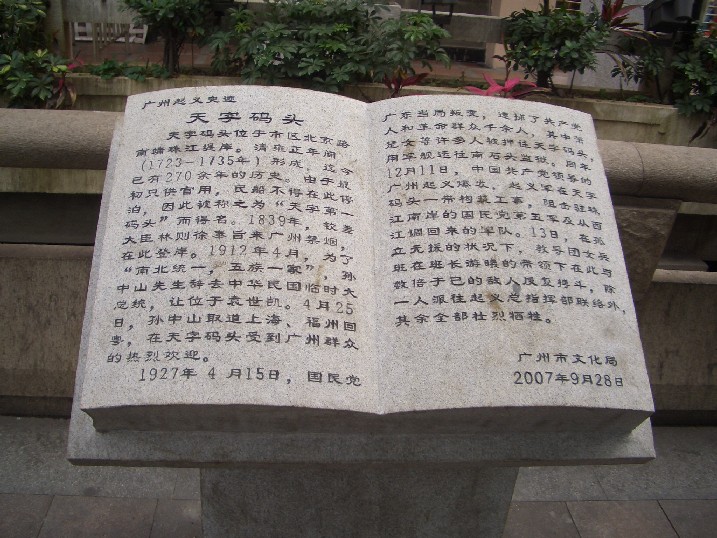 广州起义史迹
天字码头
天字码头位于市区北京路
南端珠江堤岸。清雍正年间
(1723—1735年)形成，迄今
已有270余年的历史。由于最
初只供官用，民船不得在此停
泊，因此被称之为“天字第一
码头”而得名。1839年，钦差
大臣林则徐奉旨来广州禁烟，
在此登岸。1912年4月，为了
“南北统一，五族一家”，孙
中山先生辞去中华民国临时大
总统，让位于袁世凯。4月25
日，孙中山取道上海、福州回
粤，在天字码头受到广州群众
的热烈欢迎。
1927年4月15日，国民党
广东当局叛变，逮捕了共产党
人和革命群众千余人，其中第
妃女等许多人被押往天字码头，
用军舰运往南石头监狱。同年
12月11日，中国共产党领导的
广州起义爆发，起义军在天字
码头一带构筑工事，阻击驻珠
江南岸的国民党第五军及从西
江调回来的军队。13日，在孤
立无援的状况下，教导团女兵
班在班长游曦的带领下在此与
数倍于己的敌人反复搏斗，除
一人派往起义总指挥部联络外，
其余全部壮烈牺牲。
广州市文化局
2007年9月28日